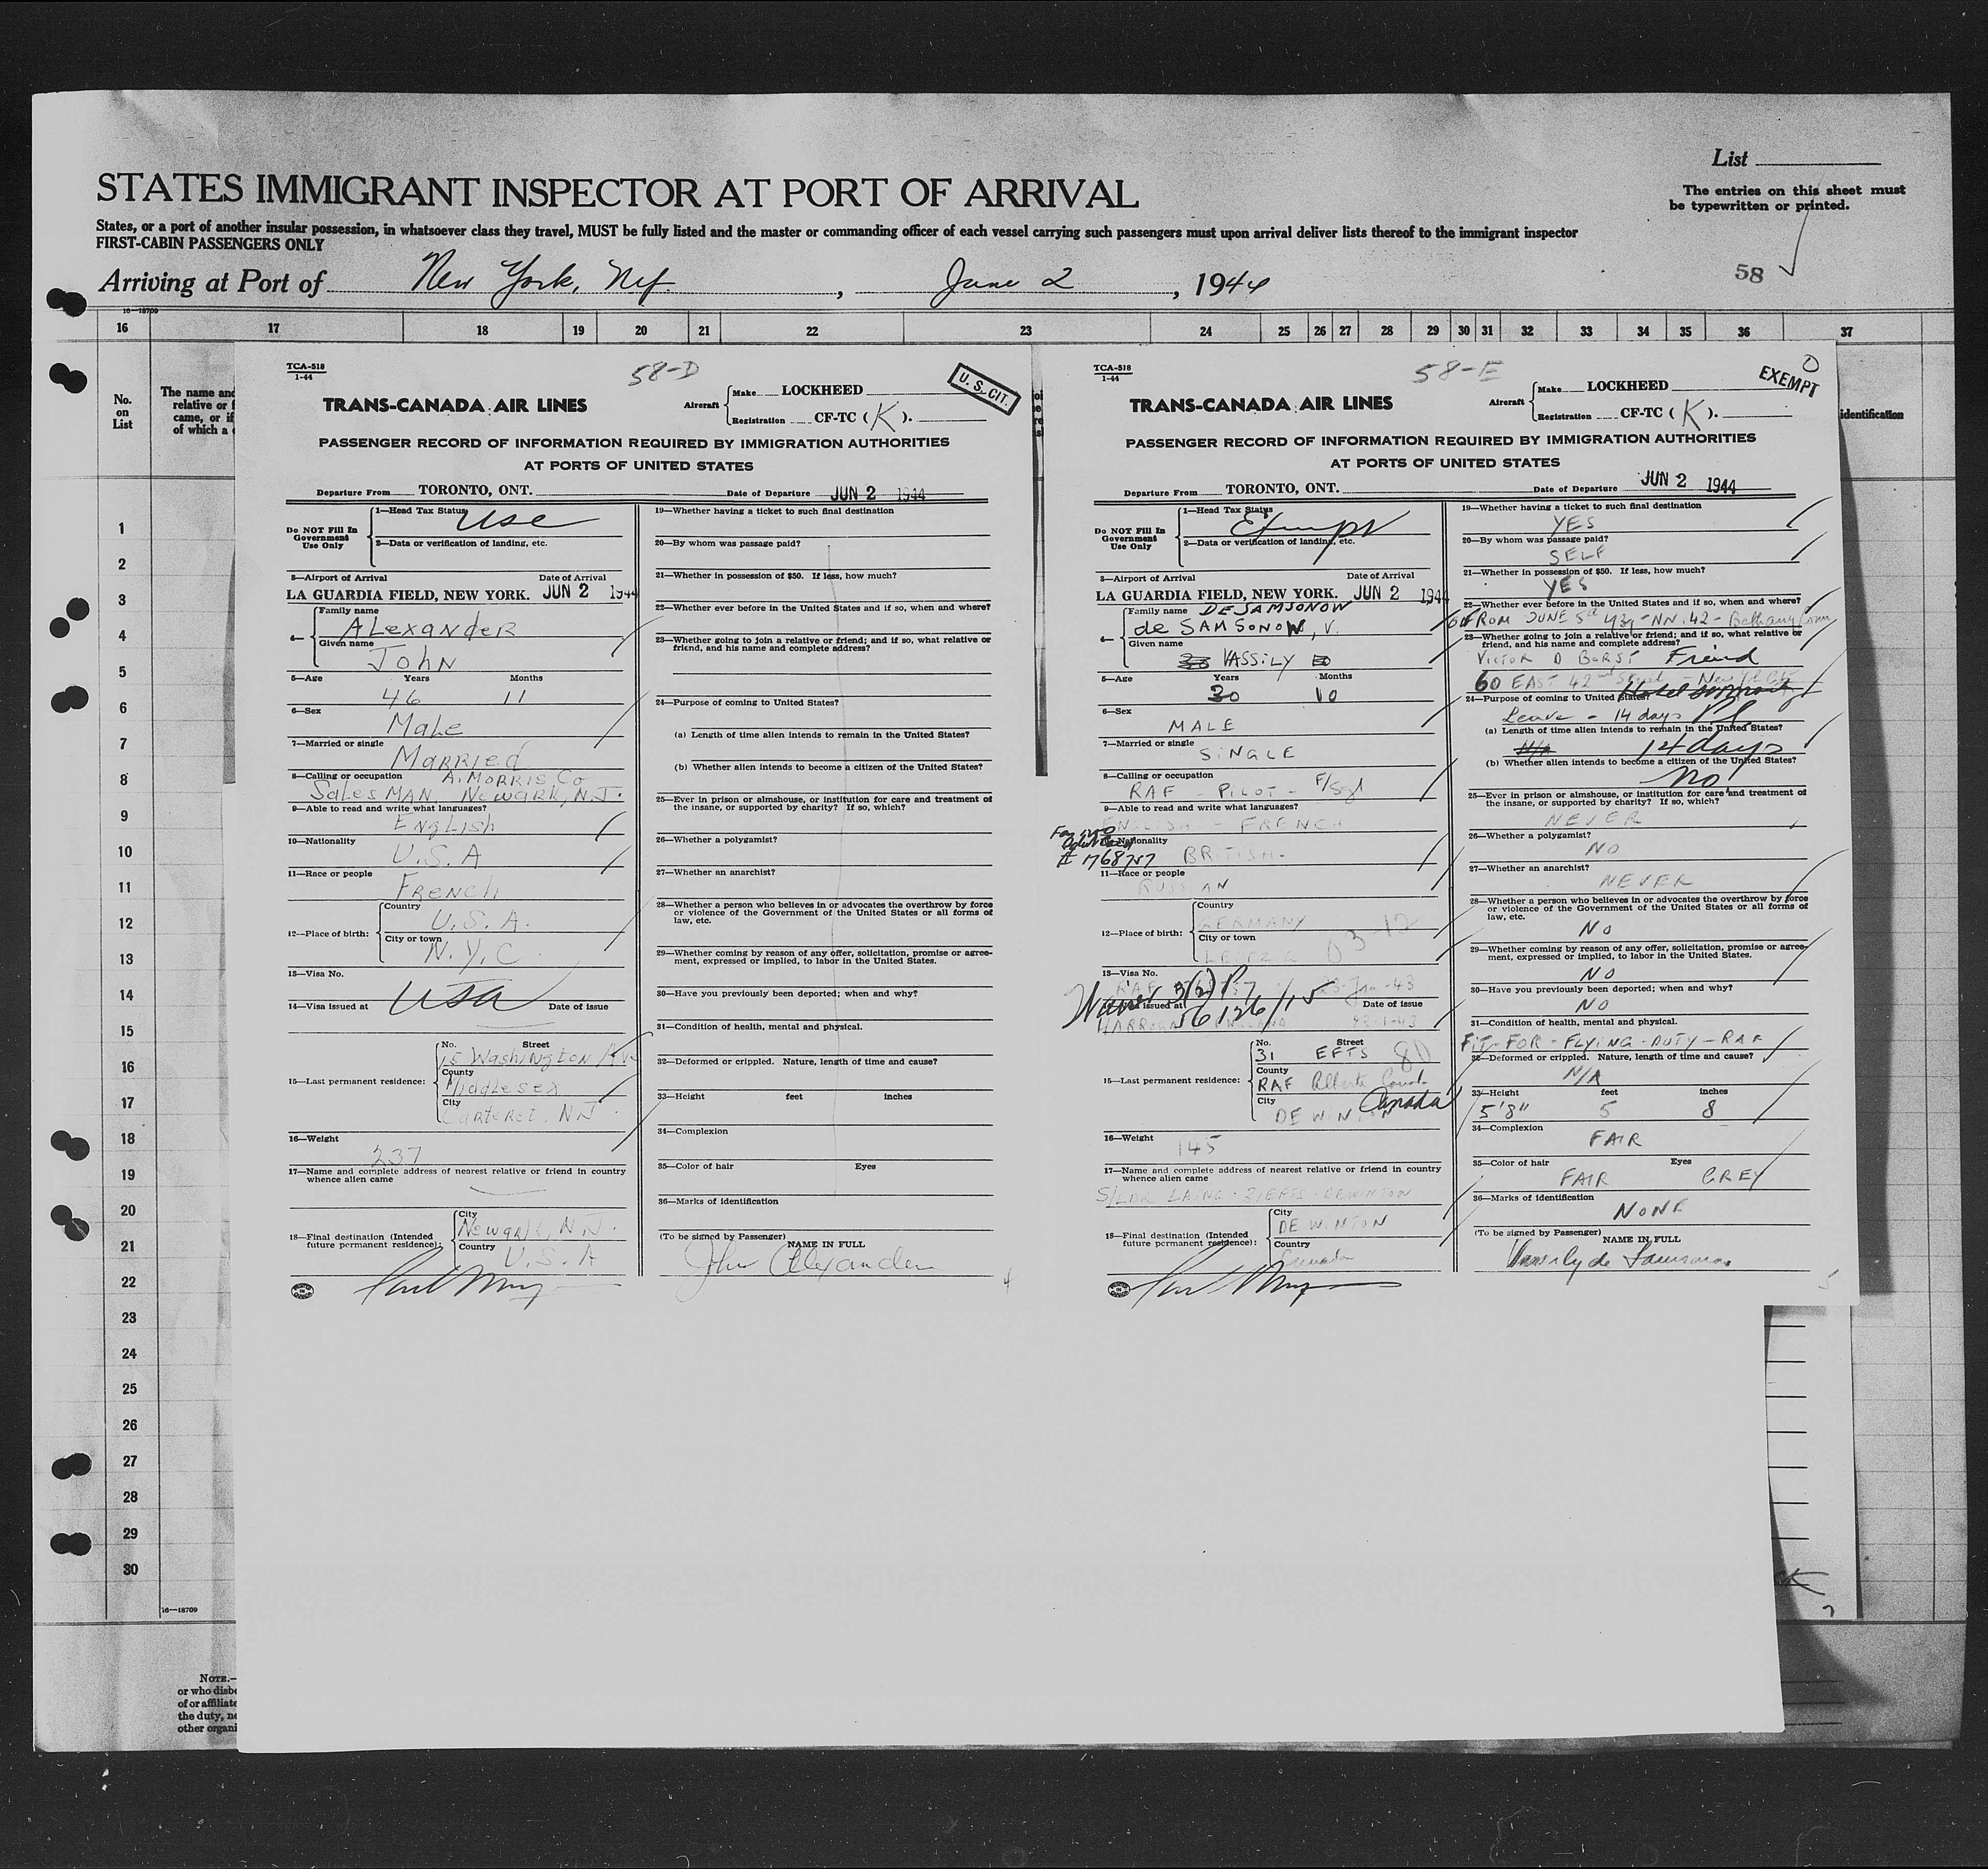 List
The entries on this sheet must
be typewritten or printed.
STATES IMMIGRANT INSPECTOR AT PORT OF ARRIVAL
States, or a port of another insular possession, in whatsoever class they travel, MUST be fully listed and the master or commanding officer of each vessel carrying such passengers must upon arrival deliver lists thereof to the immigrant inspector
FIRST-CABIN PASSENGERS ONLY
58
Arriving at Port of New York, June 2, 1944
16—18709
16 17 18 19 20 21 22 23 24 25 26 27 28 29 30 31 32 33 34 35 36 37
No.
on
List
The name and
relative or f
came, or if
of which a c
identification
1
2
3
4
5
6
7
8
9
10
11
12
13
14
15
16
17
18
19
20
21
22
23
24
25
26
27
28
29
30
16—18709
NOTE.—
or who disbe
of or affiliate
the duty, ne
other organi
TCA-518
1-44
58-D
U. S. CIT.
TRANS-CANADA AIR LINES
Aircraft
Make LOCKHEED
Registration CF-TC (K).
PASSENGER RECORD OF INFORMATION REQUIRED BY IMMIGRATION AUTHORITIES
AT PORTS OF UNITED STATES
Departure From TORONTO, ONT. Date of Departure JUN 2 1944
Do NOT Fill In
Government
Use Only
1—Head Tax Status USC
2—Data or verification of landing, etc.
3—Airport of Arrival Date of Arrival
LA GUARDIA FIELD, NEW YORK. JUN 2 1944
4—
Family name
ALexanDeR
Given name
JoHN
5—Age Years Months
46 11
6—Sex
MaLe
7—Married or single
MaRRieD
8—Calling or occupation A. MORRIS Co
SalesMAN, Newark, N.J.
9—Able to read and write what languages?
ENgLisH
10—Nationality
U.S.A
11—Race or people
FRencH
12—Place of birth:
Country
U.S.A.
City or town
N.Y.C
13—Visa No.
USA
14—Visa issued at Date of issue
15—Last permanent residence:
No. Street
15 Washington Av
County
Middlesex
City
Carteret, NJ.
16—Weight
237
17—Name and complete address of nearest relative or friend in country
whence alien came
18—Final destination (Intended
future permanent residence):
City
Newark, N.J.
Country
U.S.A
19—Whether having a ticket to such final destination
20—By whom was passage paid?
21—Whether in possession of $50. If less, how much?
22—Whether ever before in the United States and if so, when and where?
23—Whether going to join a relative or friend; and if so, what relative or
friend, and his name and complete address?
24—Purpose of coming to United States?
(a) Length of time alien intends to remain in the United States?
(b) Whether alien intends to become a citizen of the United States?
25—Ever in prison or almshouse, or institution for care and treatment of
the insane, or supported by charity? If so, which?
26—Whether a polygamist?
27—Whether an anarchist?
28—Whether a person who believes in or advocates the overthrow by force
or violence of the Government of the United States or all forms of
law, etc.
29—Whether coming by reason of any offer, solicitation, promise or agree-
ment, expressed or implied, to labor in the United States.
30—Have you previously been deported; when and why?
31—Condition of health, mental and physical.
32—Deformed or crippled. Nature, length of time and cause?
33—Height feet inches
34—Complexion
35—Color of hair Eyes
36—Marks of identification
(To be signed by Passenger) NAME IN FULL
John Alexander
4
TCA-518
1-44
58-E
0
EXEMPT
TRANS-CANADA AIR LINES
Aircraft
Make LOCKHEED
Registration CF-TC (K).
PASSENGER RECORD OF INFORMATION REQUIRED BY IMMIGRATION AUTHORITIES
AT PORTS OF UNITED STATES
Departure From TORONTO, ONT. Date of Departure JUN 2 1944
Do NOT Fill In
Government
Use Only
1—Head Tax Status Exempt
2—Data or verification of landing, etc.
3—Airport of Arrival Date of Arrival
LA GUARDIA FIELD, NEW YORK. JUN 2 1944
4—
Family name DE SAMSONOW
de SAMSONOW, V.
Given name
VASSILY
5—Age Years Months
30 10
6—Sex
MALE
7—Married or single
SINGLE
8—Calling or occupation
RAF - PILOT - F/Sgt
9—Able to read and write what languages?
ENGLISH - FRENCH
10—Nationality
BRITISH.
11—Race or people
RUSSIAN
12—Place of birth:
Country
GERMANY
City or town
LEIPZIG
03-12
13—Visa No.
Waiver
56126/15
23-Jan-43
Visa issued at Date of issue
HARROGATE ENGLAND 23-1-43
15—Last permanent residence:
No. Street
31 EFTS 80
County
RAF Alberta
City Canada
DE WINTON
16—Weight
145
17—Name and complete address of nearest relative or friend in country
whence alien came
S/LDR LAING - 31 EFTS - DEWINTON
18—Final destination (Intended
future permanent residence):
City
DE WINTON
Country
Canada
19—Whether having a ticket to such final destination
YES
20—By whom was passage paid?
SELF
21—Whether in possession of $50. If less, how much?
YES
22—Whether ever before in the United States and if so, when and where?
FROM JUNE 5th 42 - Bethany Conn
23—Whether going to join a relative or friend; and if so, what relative or
friend, and his name and complete address?
VICTOR D BORST Friend
60 EAST 42nd Street - New York City
24—Purpose of coming to United States?
Leave - 14 days
(a) Length of time alien intends to remain in the United States?
14 days
(b) Whether alien intends to become a citizen of the United States?
No
25—Ever in prison or almshouse, or institution for care and treatment of
the insane, or supported by charity? If so, which?
NEVER
26—Whether a polygamist?
NO
27—Whether an anarchist?
NEVER
28—Whether a person who believes in or advocates the overthrow by force
or violence of the Government of the United States or all forms of
law, etc.
NO
29—Whether coming by reason of any offer, solicitation, promise or agree-
ment, expressed or implied, to labor in the United States.
NO
30—Have you previously been deported; when and why?
NO
31—Condition of health, mental and physical.
FIT-FOR-FLYING-DUTY-RAF
32—Deformed or crippled. Nature, length of time and cause?
N/A
33—Height feet inches
5'8" 5 8
34—Complexion
FAIR
35—Color of hair Eyes
FAIR GREY
36—Marks of identification
NONE
(To be signed by Passenger) NAME IN FULL
Vassily de Samsonow
5